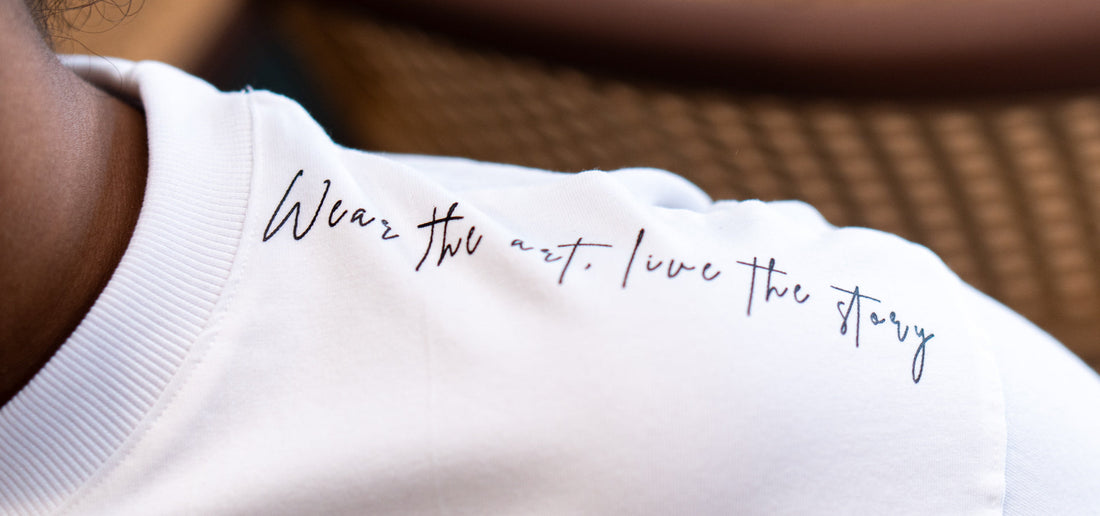 Wear the art. live the story